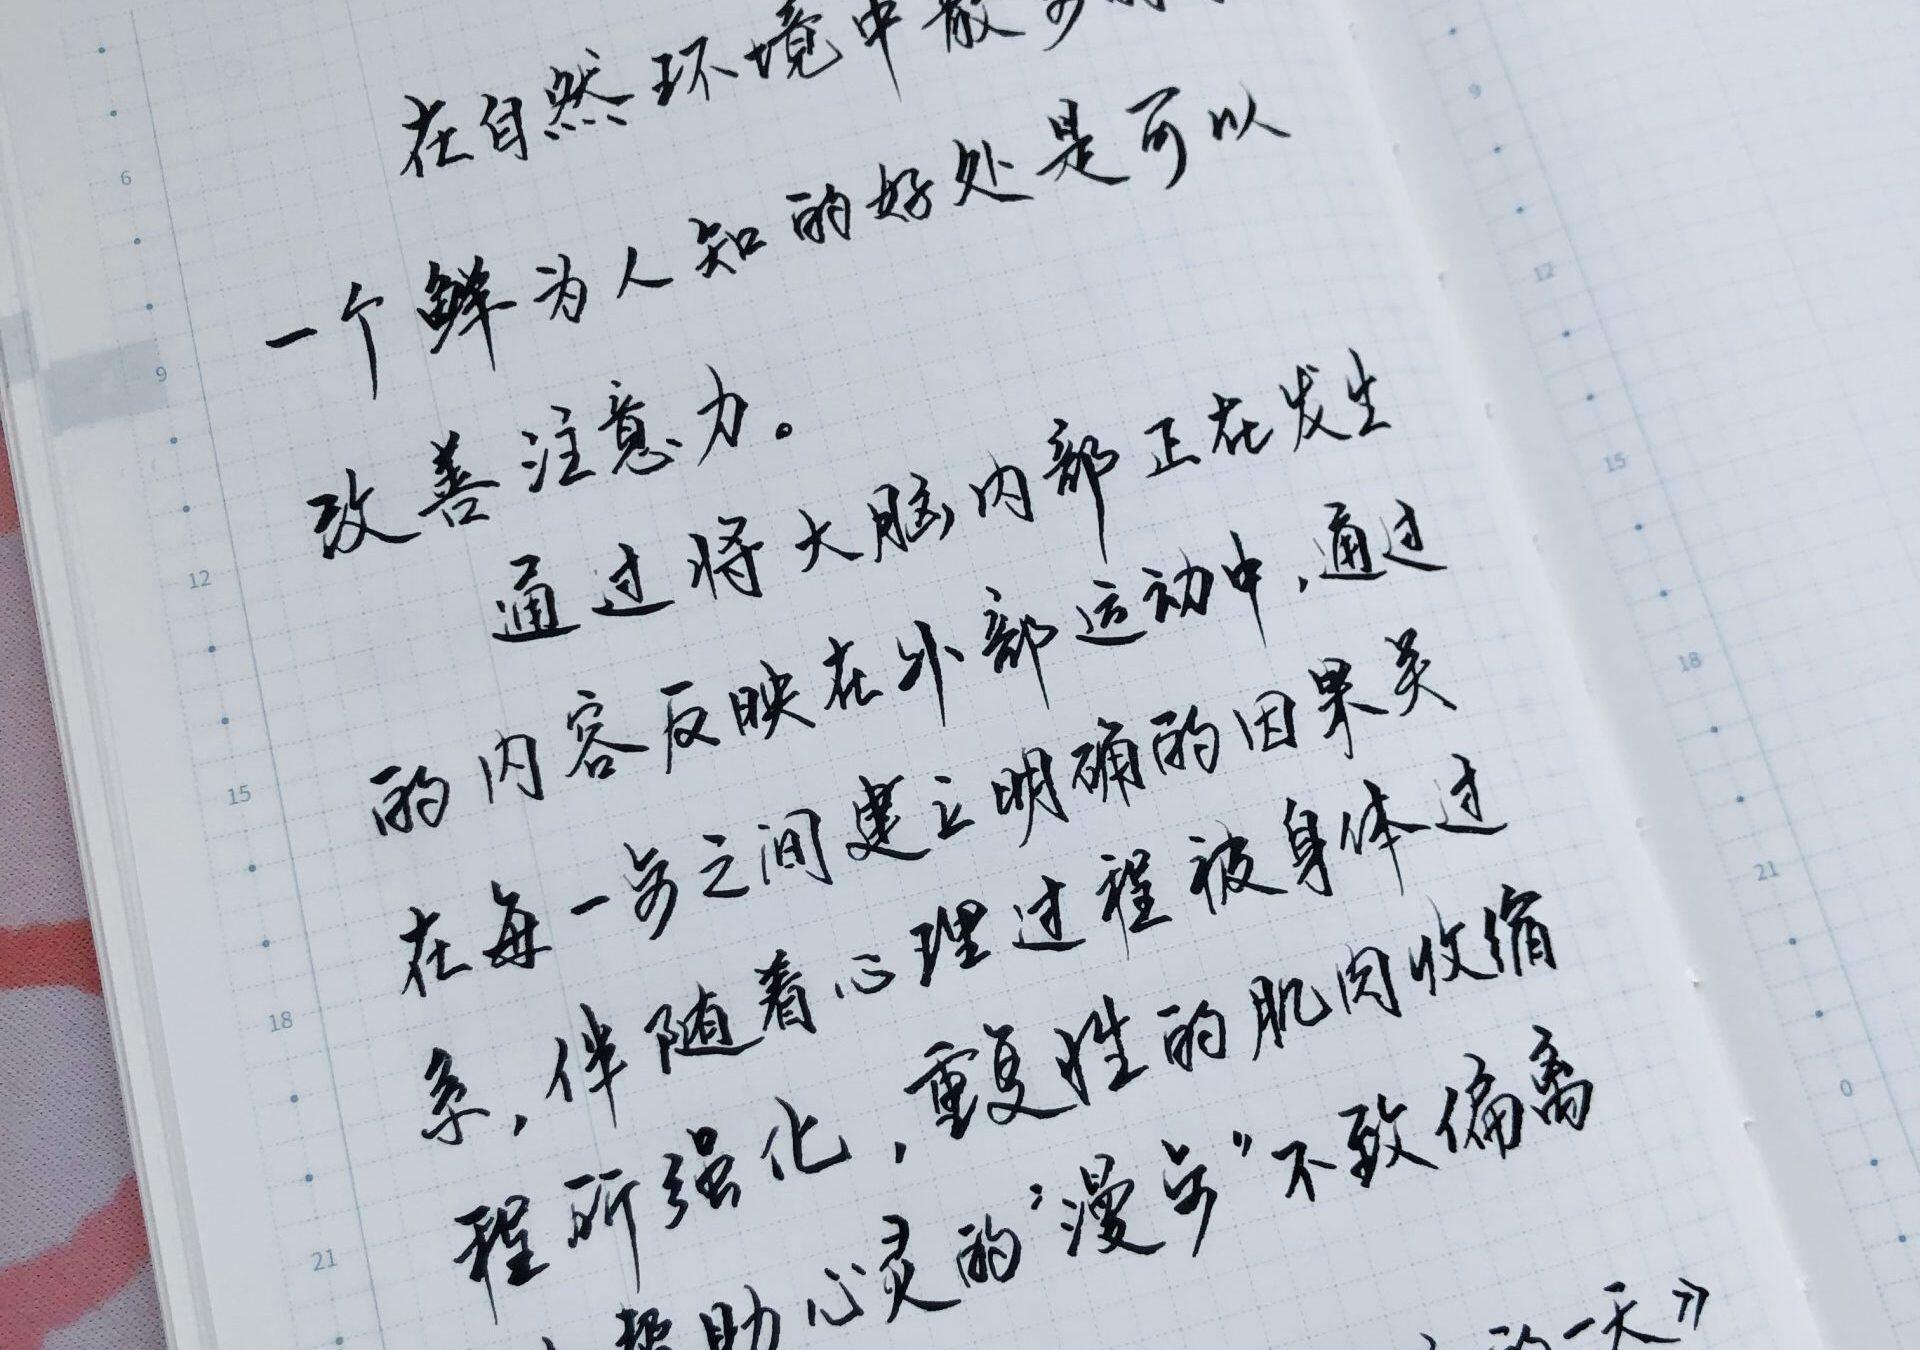 在自然环境中散步的
一个鲜为人知的好处是可以
改善注意力。
通过将大脑内部正在发生
的内容反映在外部运动中,通过
在每一步之间建立明确的因果关
系,伴随着心理过程被身体过
程所强化,重复性的肌肉收缩
帮助心灵的“漫步”不致偏离
的一天》
6
9
12
15
18
21
9
12
15
18
21
0